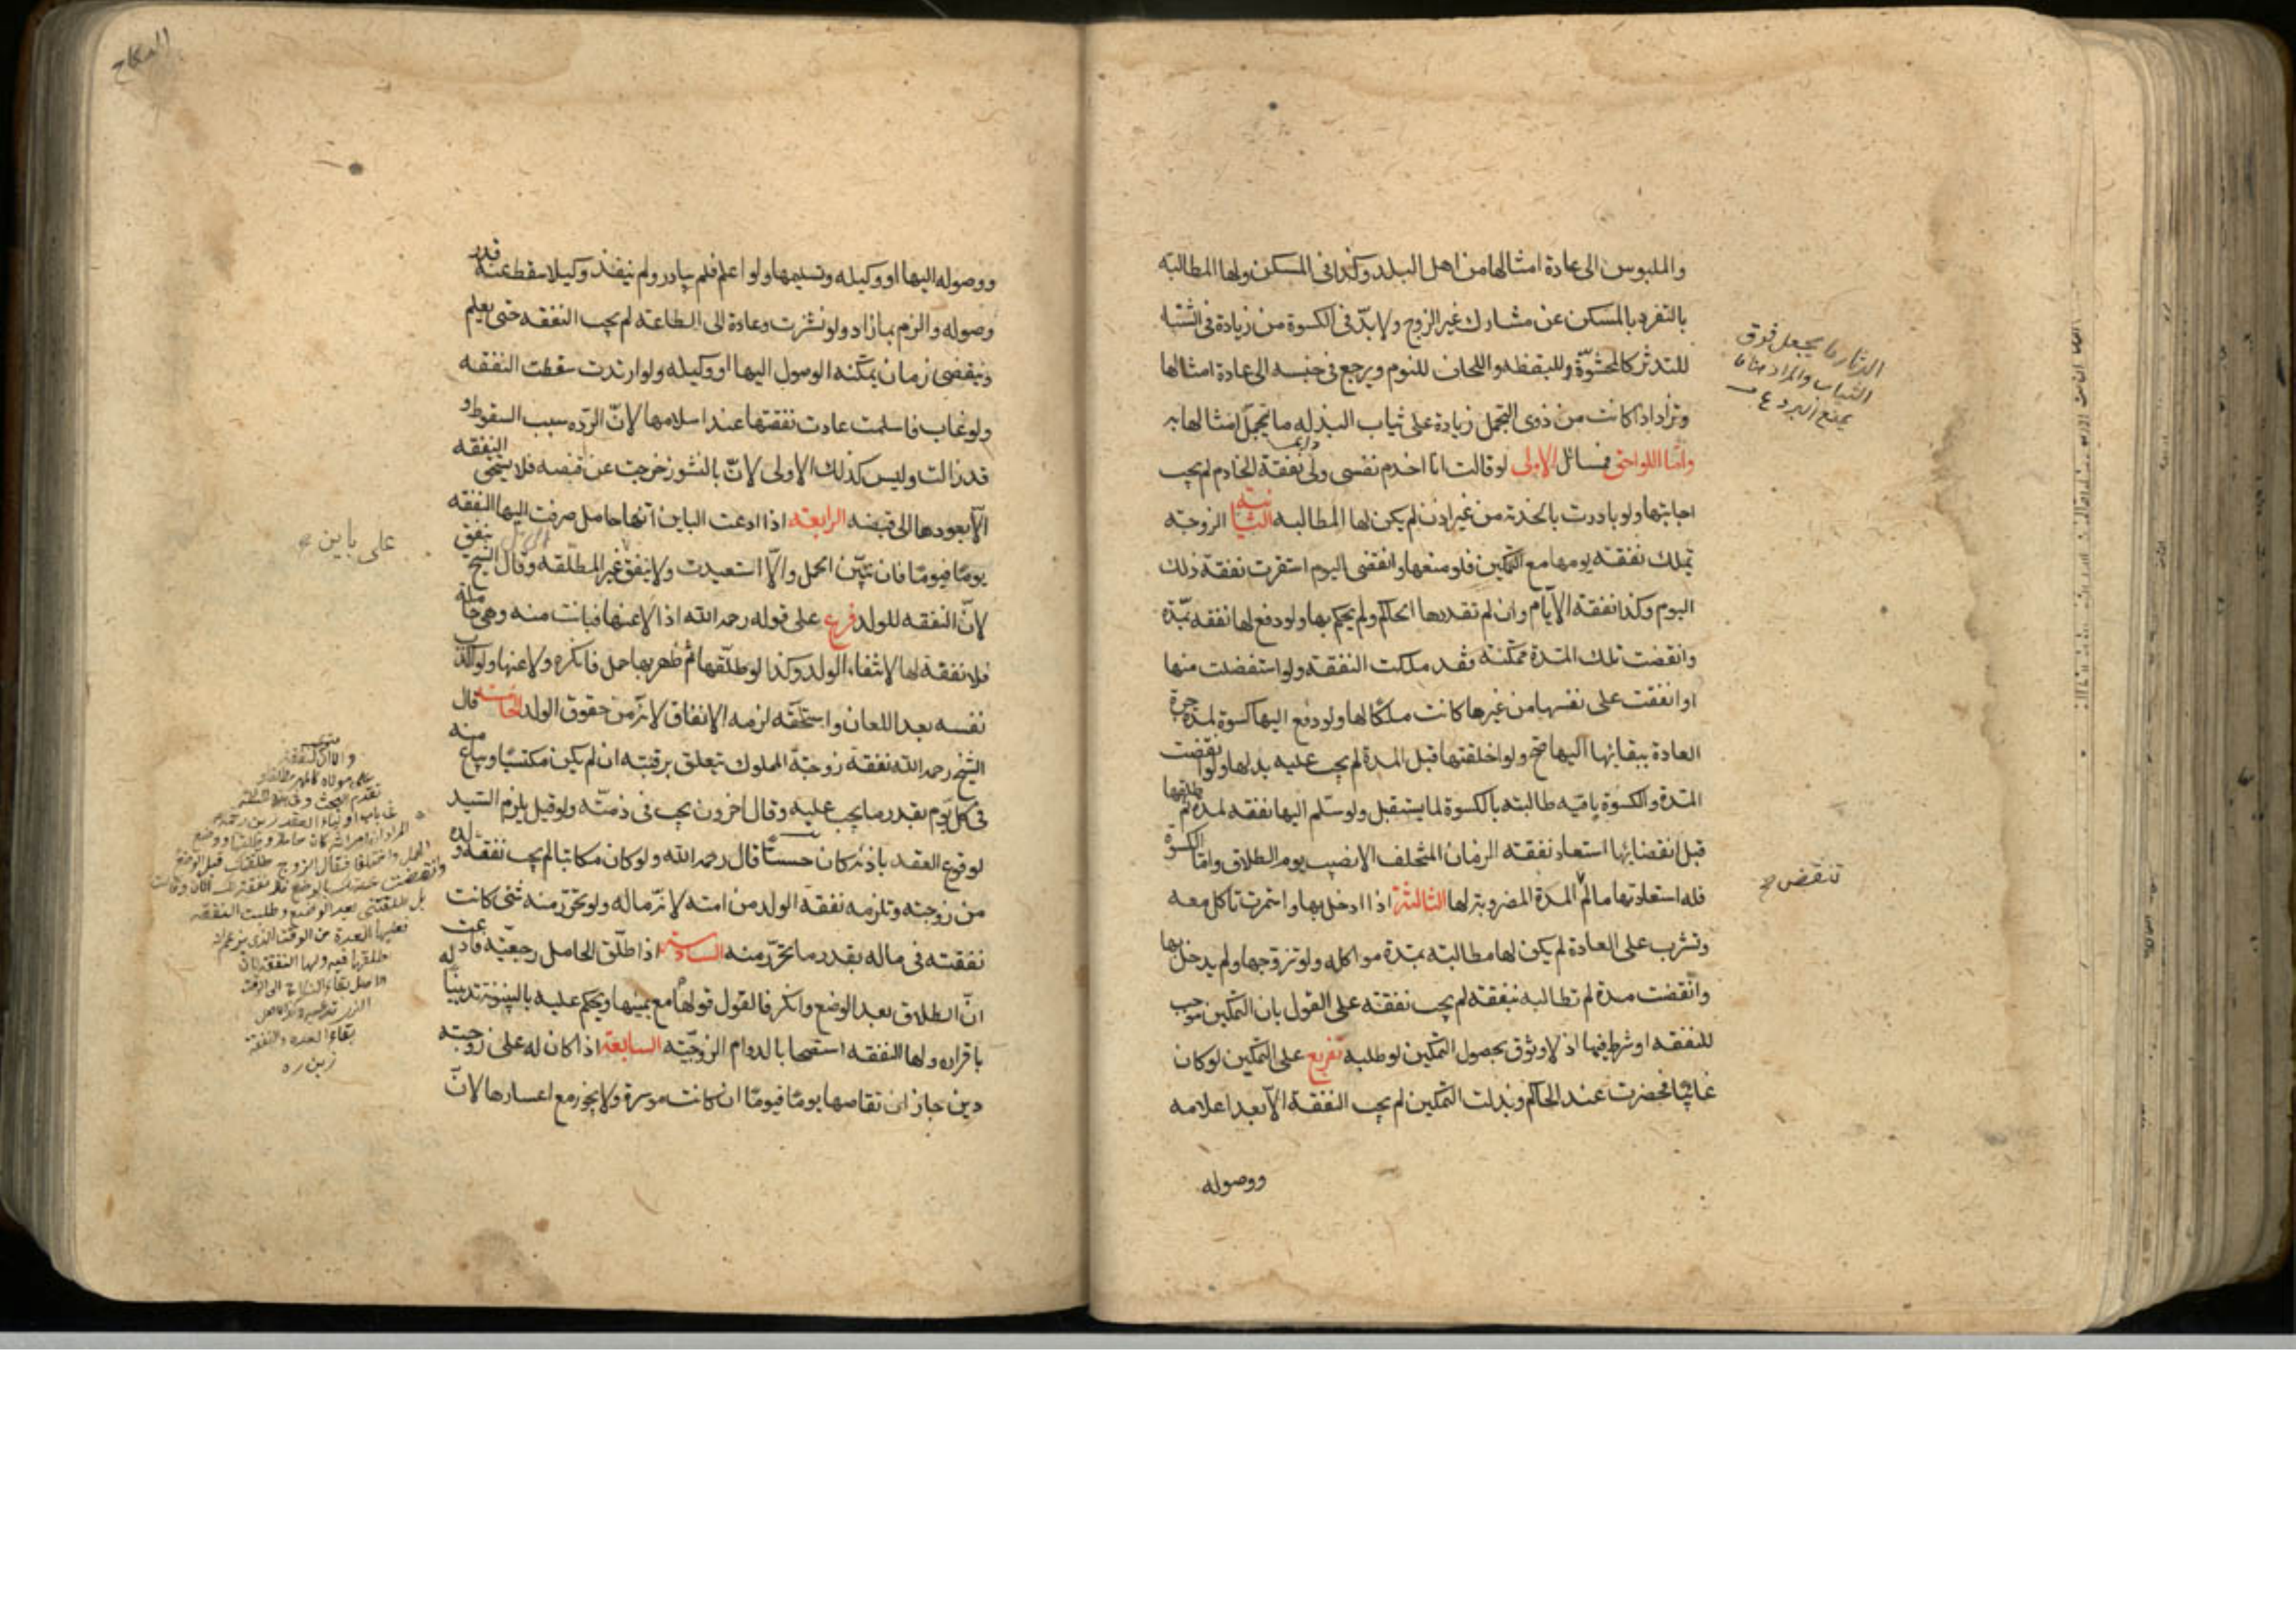 والملبوس الى عادة امثالها من اهل البلد وكذا فى المسكن ولها المطالبة
بالتفرد بالمسكن عن مشارك غير الزوج ولا بدّ فى الكسوة من زيادة فى الشتا
للتدثر كالمحشوّة ولليقظه واللحاف للنوم ويرجع فى جنسه الى عادة امثالها
وتزاد اذا كانت من ذوى التجمل زيادة على ثياب البذله ما يتجمل امثالها به
وامّا اللواحق فمسائل الاولى لو قالت انا اخدم نفسى ولى نفقة الخادم لم يجب
اجابتها ولو بادرت بالخدمة من غير اذن لم يكن لها المطالبه الثانية الزوجة
تملك نفقة يومها مع التمكين فلو منعها وانقضى اليوم استقرت نفقة ذلك
اليوم وكذا نفقة الايّام وان لم تقدرها الحاكم ولم يحكم بها ولو دفع لها نفقه لمدّة
وانقضت تلك المدة ممكّنة فقد ملكت النفقة ولو استفضلت منها
او انفقت على نفسها من غيرها كانت ملكًا لها ولو دفع اليها كسوة لمدة جرة
العادة ببقائها اليها صح ولو اخلقتها قبل المدة لم يجب عليه بدلها ولو انقضت
المدّة والكسوة باقيه طالبته بالكسوة لما يستقبل ولو سلّم اليها نفقه لمدة ثم طلقها
قبل انقضائها استعاد نفقة الزمان المتخلف الا نصيب يوم الطلاق وامّا الكسوة
فله استعادتها ما لم المدة المضروبة لها الثالثة اذا ادخل بها واستمرت تاكل معه
وتشرب على العادة لم يكن لها مطالبته بمدّة مواكله ولو تزوجها ولم يدخل بها
وانقضت مدة لم تطالبه بنفقه لم يجب نفقته على القول بان التمكين موجب
للنفقه او شرط فيها اذ لا وثوق بحصول التمكين لو طلبه تفريع على التمكين لو كان
غائبًا فحضرت عند الحاكم وبذلت التمكين لم يجب النفقة الّا بعد اعلامه
ووصوله
الدثار ما يجعل فوق
الثياب والمراد هنا ما
يمنع البرد ع
تنقض صح
النكاح
ووصوله اليها او وكيله وتسليمها ولو اعلم فلم يبادر ولم ينفذ وكيلا سقط عنه قدر
وصوله والزم بما زاد ولو نشزت وعادة الى الطاعة لم يجب النفقه حتى يعلم
وينقضى زمان يمكنه الوصول اليها او وكيله ولو ارتدت سقطت النفقه
ولو غاب فاسلمت عادت نفقتها عند اسلامها لانّ الردّه سبب السقوط و
قد زالت وليس كذلك الاولى لانّ بالنشوز خرجت عن قبضه فلا يستحق النفقه
الّا بعودها الى قبضه الرابعة اذا ادعت الباين انها حامل صرفت اليها النفقه
يومًا فيومًا فان تبيّن الحمل والّا استعيدت ولا ينفق غير المطلّقه وقال الشيخ ينفق
لانّ النفقه للولد فرع على قوله رحمه الله اذا لاعنها فبانت منه وهى حامله
فلا نفقة لها لانتفاء الولد وكذا لو طلّقها ثم ظهر بها حمل فانكره ولاعنها ولو اكذب
نفسه بعد اللعان واستلحقه لزمه الانفاق لانّه من حقوق الولد الخامسة قال
الشيخ رحمه الله نفقة زوجة المملوك تتعلق برقبته ان لم يكن مكتسبًا ويباع منه
فى كل يوم بقدر ما يجب عليه وقال اخرون يجب فى ذمّته ولو قيل يلزم السيد
لوقوع العقد باذنه كان حسنًا قال رحمه الله ولو كان مكاتبا لم يجب نفقة ولده
من زوجته وتلزمه نفقة الولد من امته لانّه ماله ولو تحرّر منه شئ كانت
نفقته فى ماله بقدر ما تحرّر منه السادسة اذا طلّق الحامل رجعيّه فادعت
انّ الطلاق بعد الوضع وانكر فالقول قولها مع يمينها ويحكم عليه بالبينونة تدينًا له
باقراره ولها النفقه استصحابا لدوام الزوجيّه السابعة اذا كان له على زوجته
دين جاز ان تقاصها يومًا فيومًا ان كانت موسرة ولا يجوز مع اعسارها لانّ
على باين صح
تقدم البحث
الحمل واختلفا فقال الزوج طلقتك قبل الوضع
وانقضت عدتك بالوضع فلا نفقة لك الان وقالت
بل طلقتنى بعد الوضع وطلبت النفقه
فعليها العدة من الوقت الذى يزعم انه
طلقها فيه ولها النفقه لان
الاصل بقاء النكاح الى الوقت
بقاء العدة والنفقة
زين ره